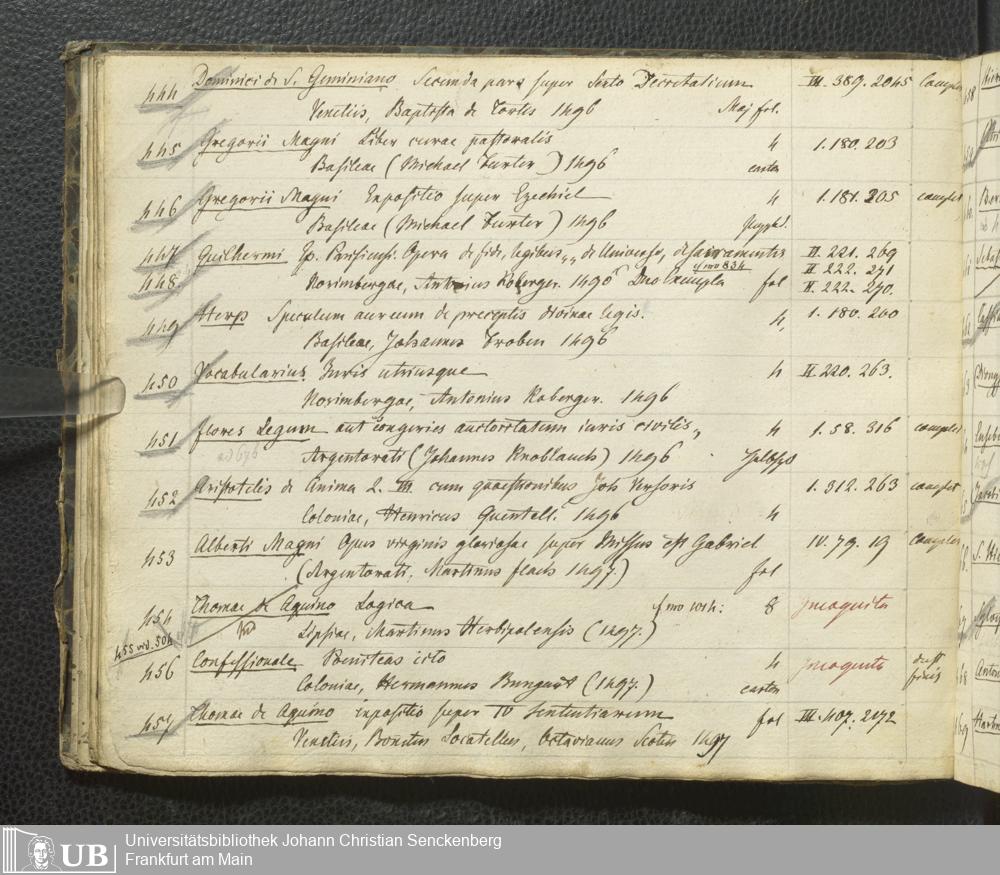 444 Dominici de S. Geminiano Secunda pars super Sexto Decretalium III. 389. 2045 complet
Venetiis, Baptista de Tortis 1496 Maj fol.
445 Gregorii Magni Liber curae pastoralis 4 I. 180. 203
Basileae (Michael Furter) 1496 carton
446 Gregorii Magni Expositio super Ezechiel 4 I. 181. 205 complet
Basileae (Michael Furter) 1496
447 Guilhermi Ep. Parisiensi. Opera de fide, legibus,, de Universo, de sacramentis II. 221. 269
448 Norimbergae, Antonius Koberger. 1496 Duo Exempla fol II. 222. 271
cf no 834 II. 222. 270.
449 Herp Speculum aureum de preceptis divinae legis. 4, I. 180. 200
Basileae, Johannes Froben 1496
450 Vocabularius Juris utriusque 4 II. 220. 263.
Norimbergae, Antonius Koberger. 1496
451 Flores Legum aut congeries auctoritatum iuris civilis,, 4 I. 58. 316 complet
ad 676 Argentorati (Johannes Knoblauch) 1496
452 Aristotelis de Anima L. III cum quaestionibus Joh Versoris I. 312. 263 complet
Coloniae, Henricus Quentell. 1496 4
453 Alberti Magni Opus virginis gloriosae super Missus est Gabriel IV. 79. 19 complet
(Argentorati, Martinus Flach 1497.) fol
454 Thomae de Aquino Logica cf no 1014: 8 Incognita
Lipsiae, Martinus Herbipolensis (1497.)
455 vid. 504
456 Confessionale 4 Incognita deest finis
Coloniae, Hermannus Bungart (1497.) carton
457 Thomae de Aquino expositio super IV Sententiarum fol III. 407. 2172
Venetiis, Bonetus Locatellus, Octavianus Scotus 1497
Universitätsbibliothek Johann Christian Senckenberg
UB Frankfurt am Main